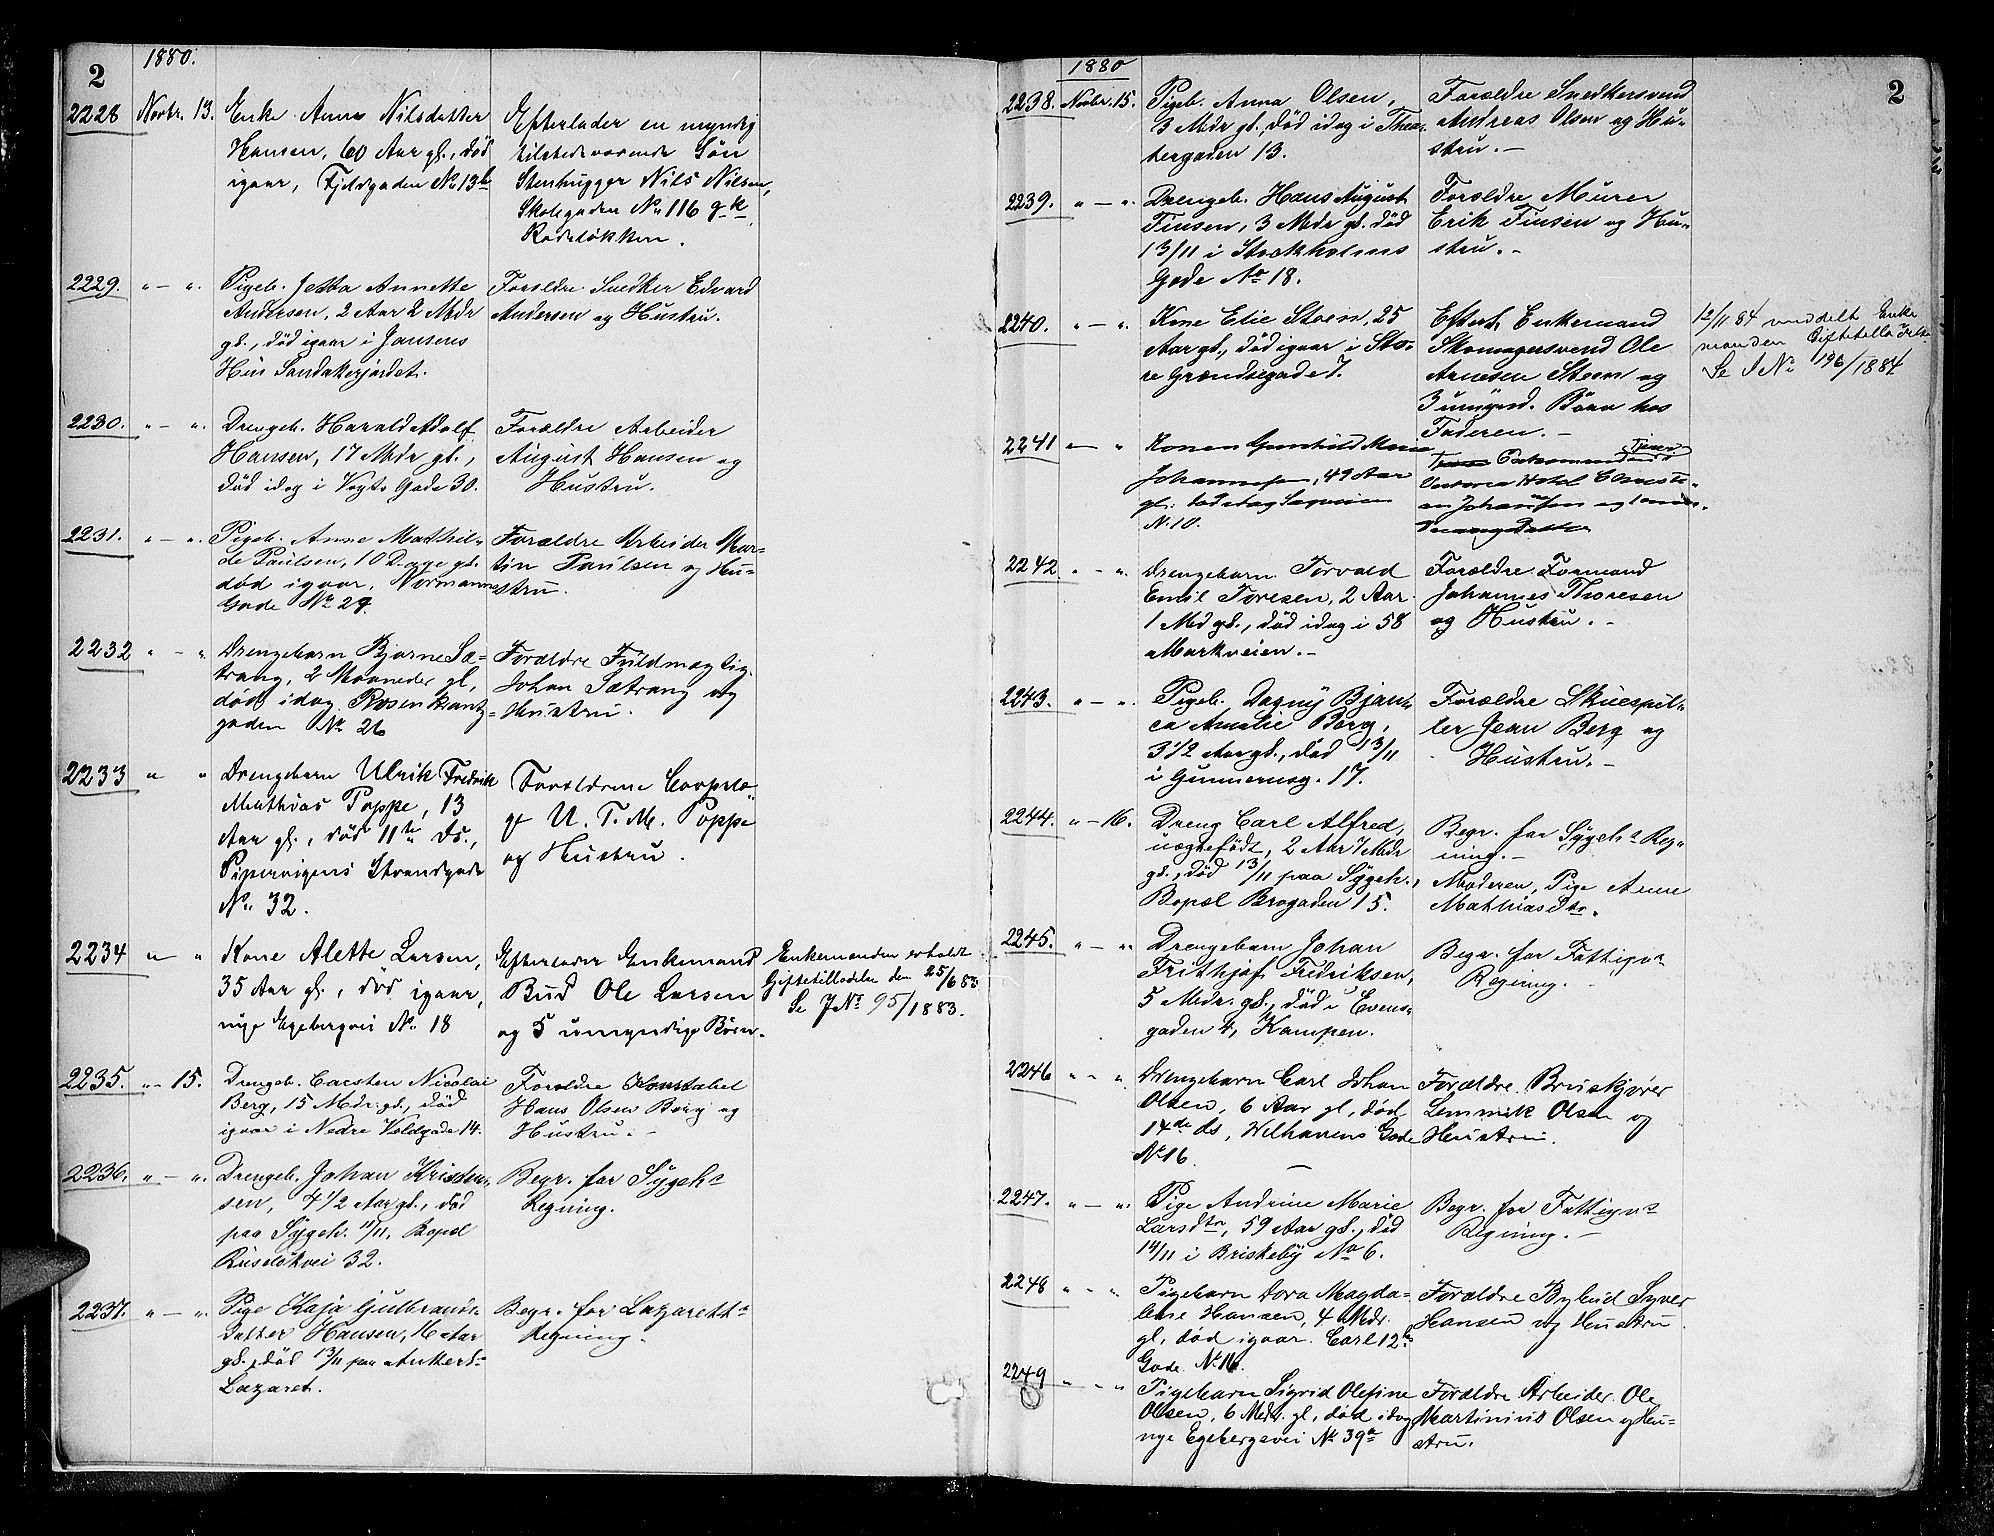 2
1880.
2228 Novbr. 13. Enke Anne Nilsdatter
Hansen, 60 Aar gl., død
igaar, Fjeldgaden No 13b
Efterlader en myndig
tilstedeværende Søn
Stenhugger Nils Nilsen,
Skolegaden No 116
Rodeløkken.
2229. " — ". Pigeb. Jetta Annette
Andersen, 2 Aar 2 Mdr
gl., død igaar i Jansens
Hus Sandakerjordet.
Forældre Snedker Edvard
Andersen og Hustru.
2230. " — ". Drengeb. Harald Adolf
Hansen, 17 Mdr gl.,
død idag i Vogts Gade 30.
Forældre Arbeider
August Hansen og
Hustru.
2231. " — ". Pigeb. Anne Mathil-
de Paulsen, 10 Dage gl.
død igaar, Normanns
Gade No 29.
Forældre Arbeider Mar-
tin Paulsen og Hu-
stru.
2232 " — ". Drengebarn Bjarne Sæ-
trang, 2 Maaneder gl,
død idag Rosenkrantz-
gaden No 26
Forældre Fuldmægtig
Johan Sætrang og
Hustru.
2233 " " Drengebarn Ulrik Fredrik
Mathias Poppe, 13
Aar gl., død 11te ds.,
Pipervigens Strandgade
No. 32.
Forældrene
U. T. M. Poppe
og Hustru.
2234 " " Kone Alette Larsen,
35 Aar gl., død igaar,
nye Egebergvei No. 18
Efterlader Enkemand
Bud Ole Larsen
og 5 umyndige Børn.
Enkemanden erholdt
Giftetilladelse den 25/6 83
Se JNo 95/1883.
2235. " - 15. Drengeb. Carsten Nicolai
Berg, 15 Mdr. gl., død
igaar i Nedre Voldgade 14.
Forældre Konstabel
Hans Olsen Berg og
Hustru. —
2236. " — ". Drengeb. Johan Kristen-
sen, 4 1/2 Aar gl., død
paa Sygeh. 11/11, Bopæl
Ruseløkvei 32.
Begr. for Sygehs
Regning.
2237. " — ". Pige Kaja Gulbrands-
datter Hansen, 16 Aar
gl., død 13/11 paa Ankerl-
Lazaret.
Begr. for Lazaretts
Regning.
2
1880
2238. Novbr. 15. Pigeb. Anna Olsen,
3 Mdr gl., død idag i Thea-
tergaden 13.
Forældre Snedkersvend
Andreas Olsen og Hu-
stru. —
2239. " — ". Drengeb. Hans August
Finsen, 3 Mdr gl. død
13/11 i Stockholms
Gade No 18.
Forældre Murer
Erik Finsen og Hu-
stru. -
2240. " — ". Kone Elie Steen, 25
Aar gl., død igaar i Sto-
re Grændsegade 7.
Efterl. Enkemand
Skomagersvend Ole
Arnesen Steen og
3 umynd. Børn hos
Faderen. —
12/11 84 meddelt Enke
manden Giftetilladelse
Se J No 196/1884
2241 — " Konen Gunhild Marie
Johannesen, 49 Aar
gl.
No. 10.
Enkemanden Tjener
Victoria Hotel Christi-
an Johansen og
2242 " — ". Drengebarn Torvald
Emil Toresen, 2 Aar
1 Md gl., død idag i 58
Markveien. —
Forældre Formand
Johannes Thoresen
og Hustru. -
2243. " — ". Pigeb. Dagny Bjan-
ca Amalie Berg,
3 1/2 Aar gl., død 13/11
i Gunnerusg. 17.
Forældre Skuespil-
ler Jean Berg og
Hustru. —
2244. " - 16. Dreng Carl Alfred,
uægtefødt, 2 Aar 7 Mdr
gl., død 13/11 paa Sygeh.,
Bopæl Brogaden 15.
Begr. for Sygehs Reg-
ning. —
Moderen, Pige Anne
Mathiasdtr.
2245. " — ". Drengebarn Johan
Frithjof Fredriksen,
5 Mdr. gl., død i Evens-
gaden 4, Kampen.
Begr. for Fattigvs
Regning. -
2246 " - " Drengebarn Carl Johan
Olsen, 6 Aar gl, død
14de ds, Welhavens Gade
No 16.
Forældre Bruskjører
Lemmik Olsen og
Hustru.
2247. " — ". Pige Andrine Marie
Larsdtr, 59 Aar gl., død
14/11 i Briskeby No 6.
Begr. for Fattigvs
Regning. —
2248 " - " Pigebarn Dora Magda-
lene Hansen, 4 Mdr.
gl, død igaar. Carl 12te
Gade No 16.
Forældre Bybud Syver
Hansen og Hustru.
2249 " - " Pigebarn Sigrid Olefine
Olsen, 6 Mdr. gl, død idag
nye Egebergsvei No 39a
Forældre Arbeider Ole
Martinius Olsen og Hu-
stru.